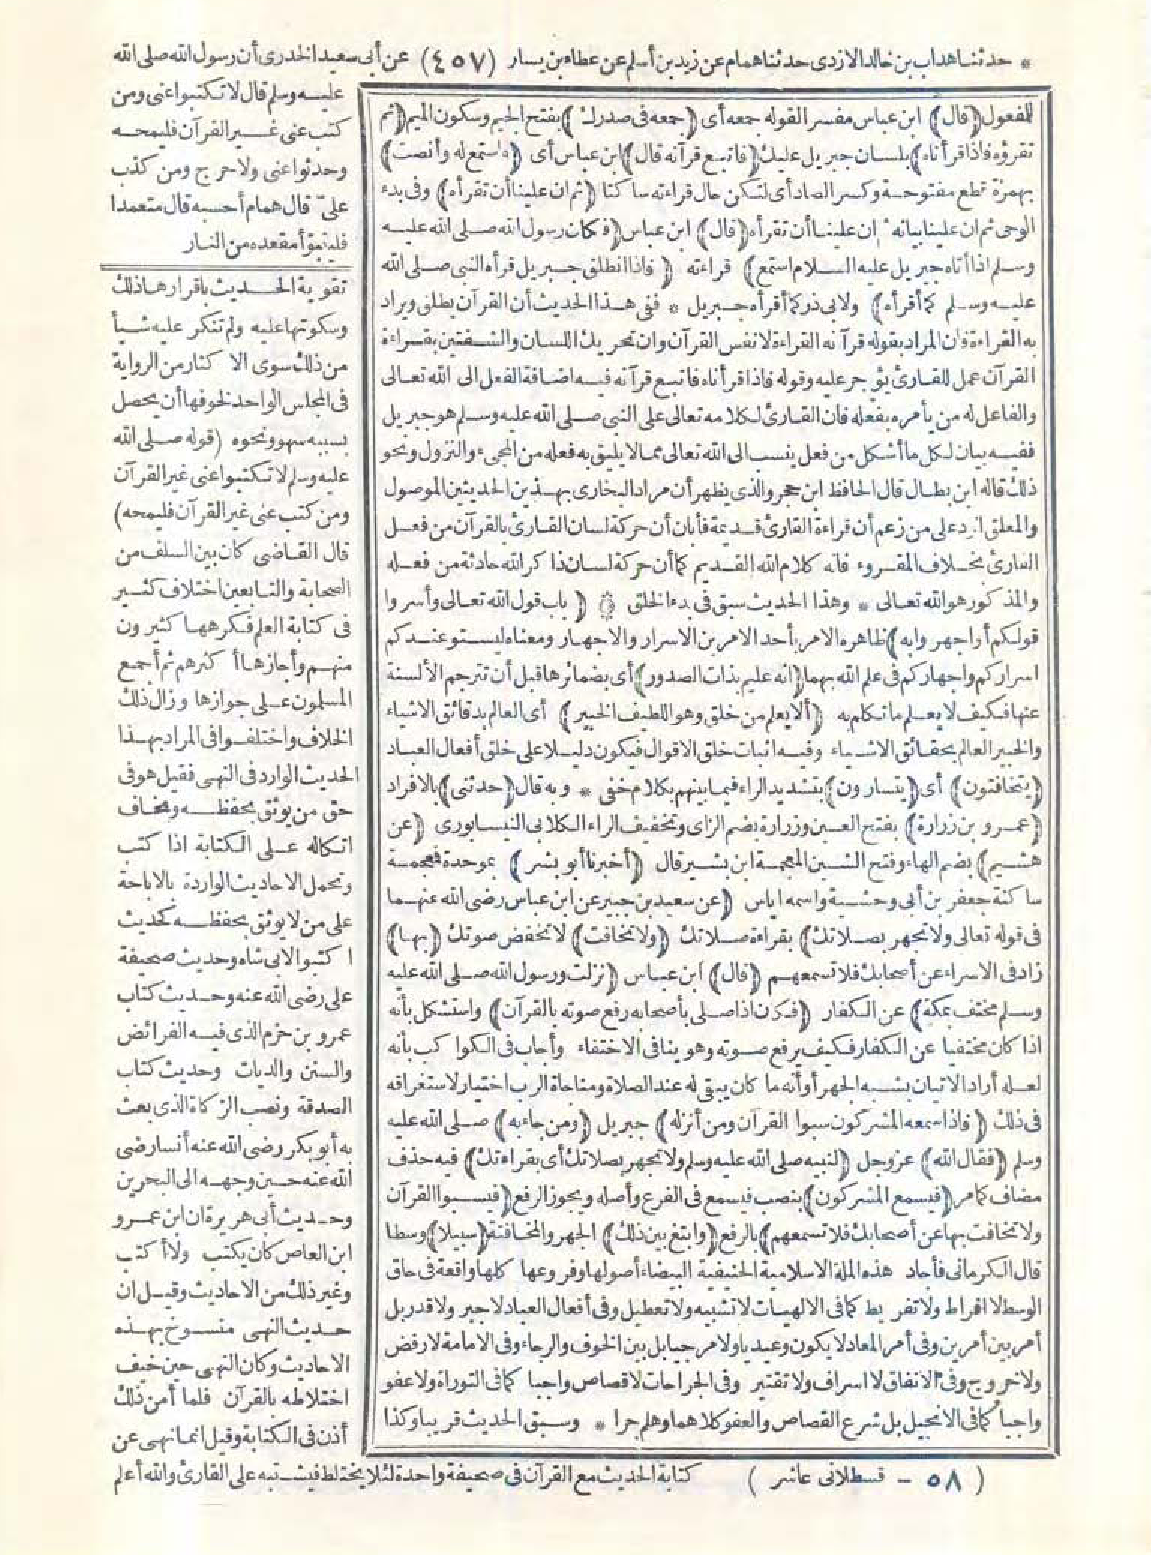 * حدثنا هداب بن خالد الازدى حدثنا همام عن زيد بن أسلم عن عطاء بن يسار (٤٥٧) عن أبى سعيد الخدرى أن رسول الله صلى الله
عليه وسلم قال لا تكتبوا عنى ومن
كتب عنى غير القرآن فليمحه
وحدثوا عنى ولا حرج ومن كذب
علىّ قال همام أحسبه قال متعمدا
فليتبوّأ مقعده من النار
تقوية الحديث باقرارها ذلك
وسكوتها عليه ولم تنكر عليه شيأ
من ذلك سوى الاكثار من الرواية
فى المجلس الواحد لخوفها أن يحصل
بسببه سهو ونحوه (قوله صلى الله
عليه وسلم لا تكتبوا عنى غير القرآن
ومن كتب عنى غير القرآن فليمحه)
قال القاضى كان بين السلف من
الصحابة والتابعين اختلاف كثير
فى كتابة العلم فكرهها كثيرون
منهم وأجازها أكثرهم ثم أجمع
المسلمون على جوازها وزال ذلك
الخلاف واختلفوا فى المراد بهذا
الحديث الوارد فى النهى فقيل هو فى
حق من يوثق بحفظه ويخاف
اتكاله على الكتابة اذا كتب
وتحمل الاحاديث الواردة بالاباحة
على من لا يوثق بحفظه كحديث
اكتبوا لابى شاه وحديث صحيفة
على رضى الله عنه وحديث كتاب
عمرو بن حزم الذى فيه الفرائض
والسنن والديات وحديث كتاب
الصدقة ونصب الزكاة الذى بعث
به أبو بكر رضى الله عنه أنسا رضى
الله عنه حين وجهه الى البحرين
وحديث أبى هريرة ان ابن عمرو
ابن العاص كان يكتب ولا أكتب
وغير ذلك من الاحاديث وقيل ان
حديث النهى منسوخ بهذه
الاحاديث وكان النهى حين خيف
اختلاطه بالقرآن فلما أمن ذلك
أذن فى الكتابة وقيل انما نهى عن
كتابة الحديث مع القرآن فى صحيفة واحدة لئلا يختلط فيشتبه على القارئ والله أعلم
للفعول (قال) ابن عباس مفسرا لقوله جمعه أى (جمعه فى صدرك) بفتح الجيم وسكون الميم (ثم
تقرؤه فاذا قرأناه) بلسان جبريل عليك (فاتبع قرآنه قال) ابن عباس أى (فاستمع له وأنصت)
بهمزة قطع مفتوحة وكسر الصاد أى لتكن حال قراءته ساكتا (ثم ان علينا أن تقرأه) وفى بدء
الوحى ثم ان علينا بيانه ثم ان علينا أن تقرأه (قال) ابن عباس (فكان رسول الله صلى الله عليه
وسلم اذا أتاه جبريل عليه السلام استمع) قراءته (فاذا انطلق جبريل قرأه النبى صلى الله
عليه وسلم كما أقرأه) ولابى ذر كما أقرأه جبريل * ففى هذا الحديث أن القرآن يطلق ويراد
به القراءة فان المراد بقوله قرآنه القراءة لا نفس القرآن وان تحريك اللسان والشفتين بقراءة
القرآن عمل للقارئ يؤجر عليه وقوله فاذا قرأناه فاتبع قرآنه فيه اضافة الفعل الى الله تعالى
والفاعل له من يأمره بفعله فان القارئ لكلامه تعالى على النبى صلى الله عليه وسلم هو جبريل
ففيه بيان لكل ما أشكل من فعل ينسب الى الله تعالى مما لا يليق به فعله من المجىء والنزول ونحو
ذلك قاله ابن بطال قال الحافظ ابن حجر والذى يظهر أن مراد البخارى بهذين الحديثين الموصول
والمعلق الرد على من زعم أن قراءة القارئ قديمة فأبان أن حركة لسان القارئ بالقرآن من فعل
القارئ بخلاف المقروء فانه كلام الله القديم كما أن حركة لسان ذاكر الله حادثة من فعله
والمذكور هو الله تعالى * وهذا الحديث سبق فى بدء الخلق (باب قول الله تعالى وأسروا
قولكم أو اجهروا به) ظاهره الامر بأحد الامرين الاسرار والاجهار ومعناه ليستو عندكم
اسراركم واجهاركم فى علم الله بهما (انه عليم بذات الصدور) أى بضمائرها قبل أن تترجم الألسنة
عنها فكيف لا يعلم ما تكلم به (ألا يعلم من خلق وهو اللطيف الخبير) أى العالم بدقائق الاشياء
والخبير العالم بحقائق الاشياء وفيه اثبات خلق الاقوال فيكون دليلا على خلق أفعال العباد
(يتخافتون) أى (يتسارون) بتشديد الراء فيما بينهم بكلام خفى * وبه قال (حدثنى) بالافراد
(عمرو بن زرارة) بفتح العين وزرارة بضم الزاى وتخفيف الراء الكلابى النيسابورى (عن
هشيم) بضم الهاء وفتح الشين المعجمة ابن بشير قال (أخبرنا أبو بشر) بموحدة فمعجمة
ساكنة جعفر بن أبى وحشية واسمه اياس (عن سعيد بن جبير عن ابن عباس رضى الله عنهما
فى قوله تعالى ولا تجهر بصلاتك) بقراءة صلاتك (ولا تخافت) لا تخفض صوتك (بها)
زاد فى الاسراء عن أصحابك فلا تسمعهم (قال) ابن عباس (نزلت ورسول الله صلى الله عليه
وسلم مختف بمكة) عن الكفار (فكان اذا صلى بأصحابه رفع صوته بالقرآن) واستشكل بأنه
اذا كان مختفيا عن الكفار فكيف يرفع صوته وهو ينافى الاختفاء وأجاب فى الكواكب بأنه
لعله أراد الاتيان بشبه الجهر أو أنه ما كان يبقى له عند الصلاة ومناجاة الرب اختيار لاستغراقه
فى ذلك (فاذا سمعه المشركون سبوا القرآن ومن أنزله) جبريل (ومن جاء به) صلى الله عليه
وسلم (فقال الله) عز وجل (لنبيه صلى الله عليه وسلم ولا تجهر بصلاتك أى بقراءتك) فيه حذف
مضاف كما مر (فيسمع المشركون) بنصب فيسمع فى الفرع وأصله ويجوز الرفع (فيسبوا القرآن
ولا تخافت بها عن أصحابك فلا تسمعهم) بالرفع (وابتغ بين ذلك) الجهر والمخافتة (سبيلا) وسطا
قال الكرمانى فأحاد هذه الملة الاسلامية الحنيفية البيضاء أصولها وفروعها كلها واقعة فى حاق
الوسط لا افراط ولا تفريط كما فى الالهيات لا تشبيه ولا تعطيل وفى أفعال العباد لا جبر ولا قدر بل
أمر بين أمرين وفى أمر المعاد لا يكون وعيديا ولا مرجيا بل بين الخوف والرجاء وفى الامامة لا رفض
ولا خروج وفى الانفاق لا اسراف ولا تقتير وفى الجراحات لا قصاص واجبا كما فى التوراة ولا عفو
واجبا كما فى الانجيل بل شرع القصاص والعفو كلاهما وهلم جرا * وسبق الحديث قريبا وكذا
(٥٨ - قسطلانى عاشر)